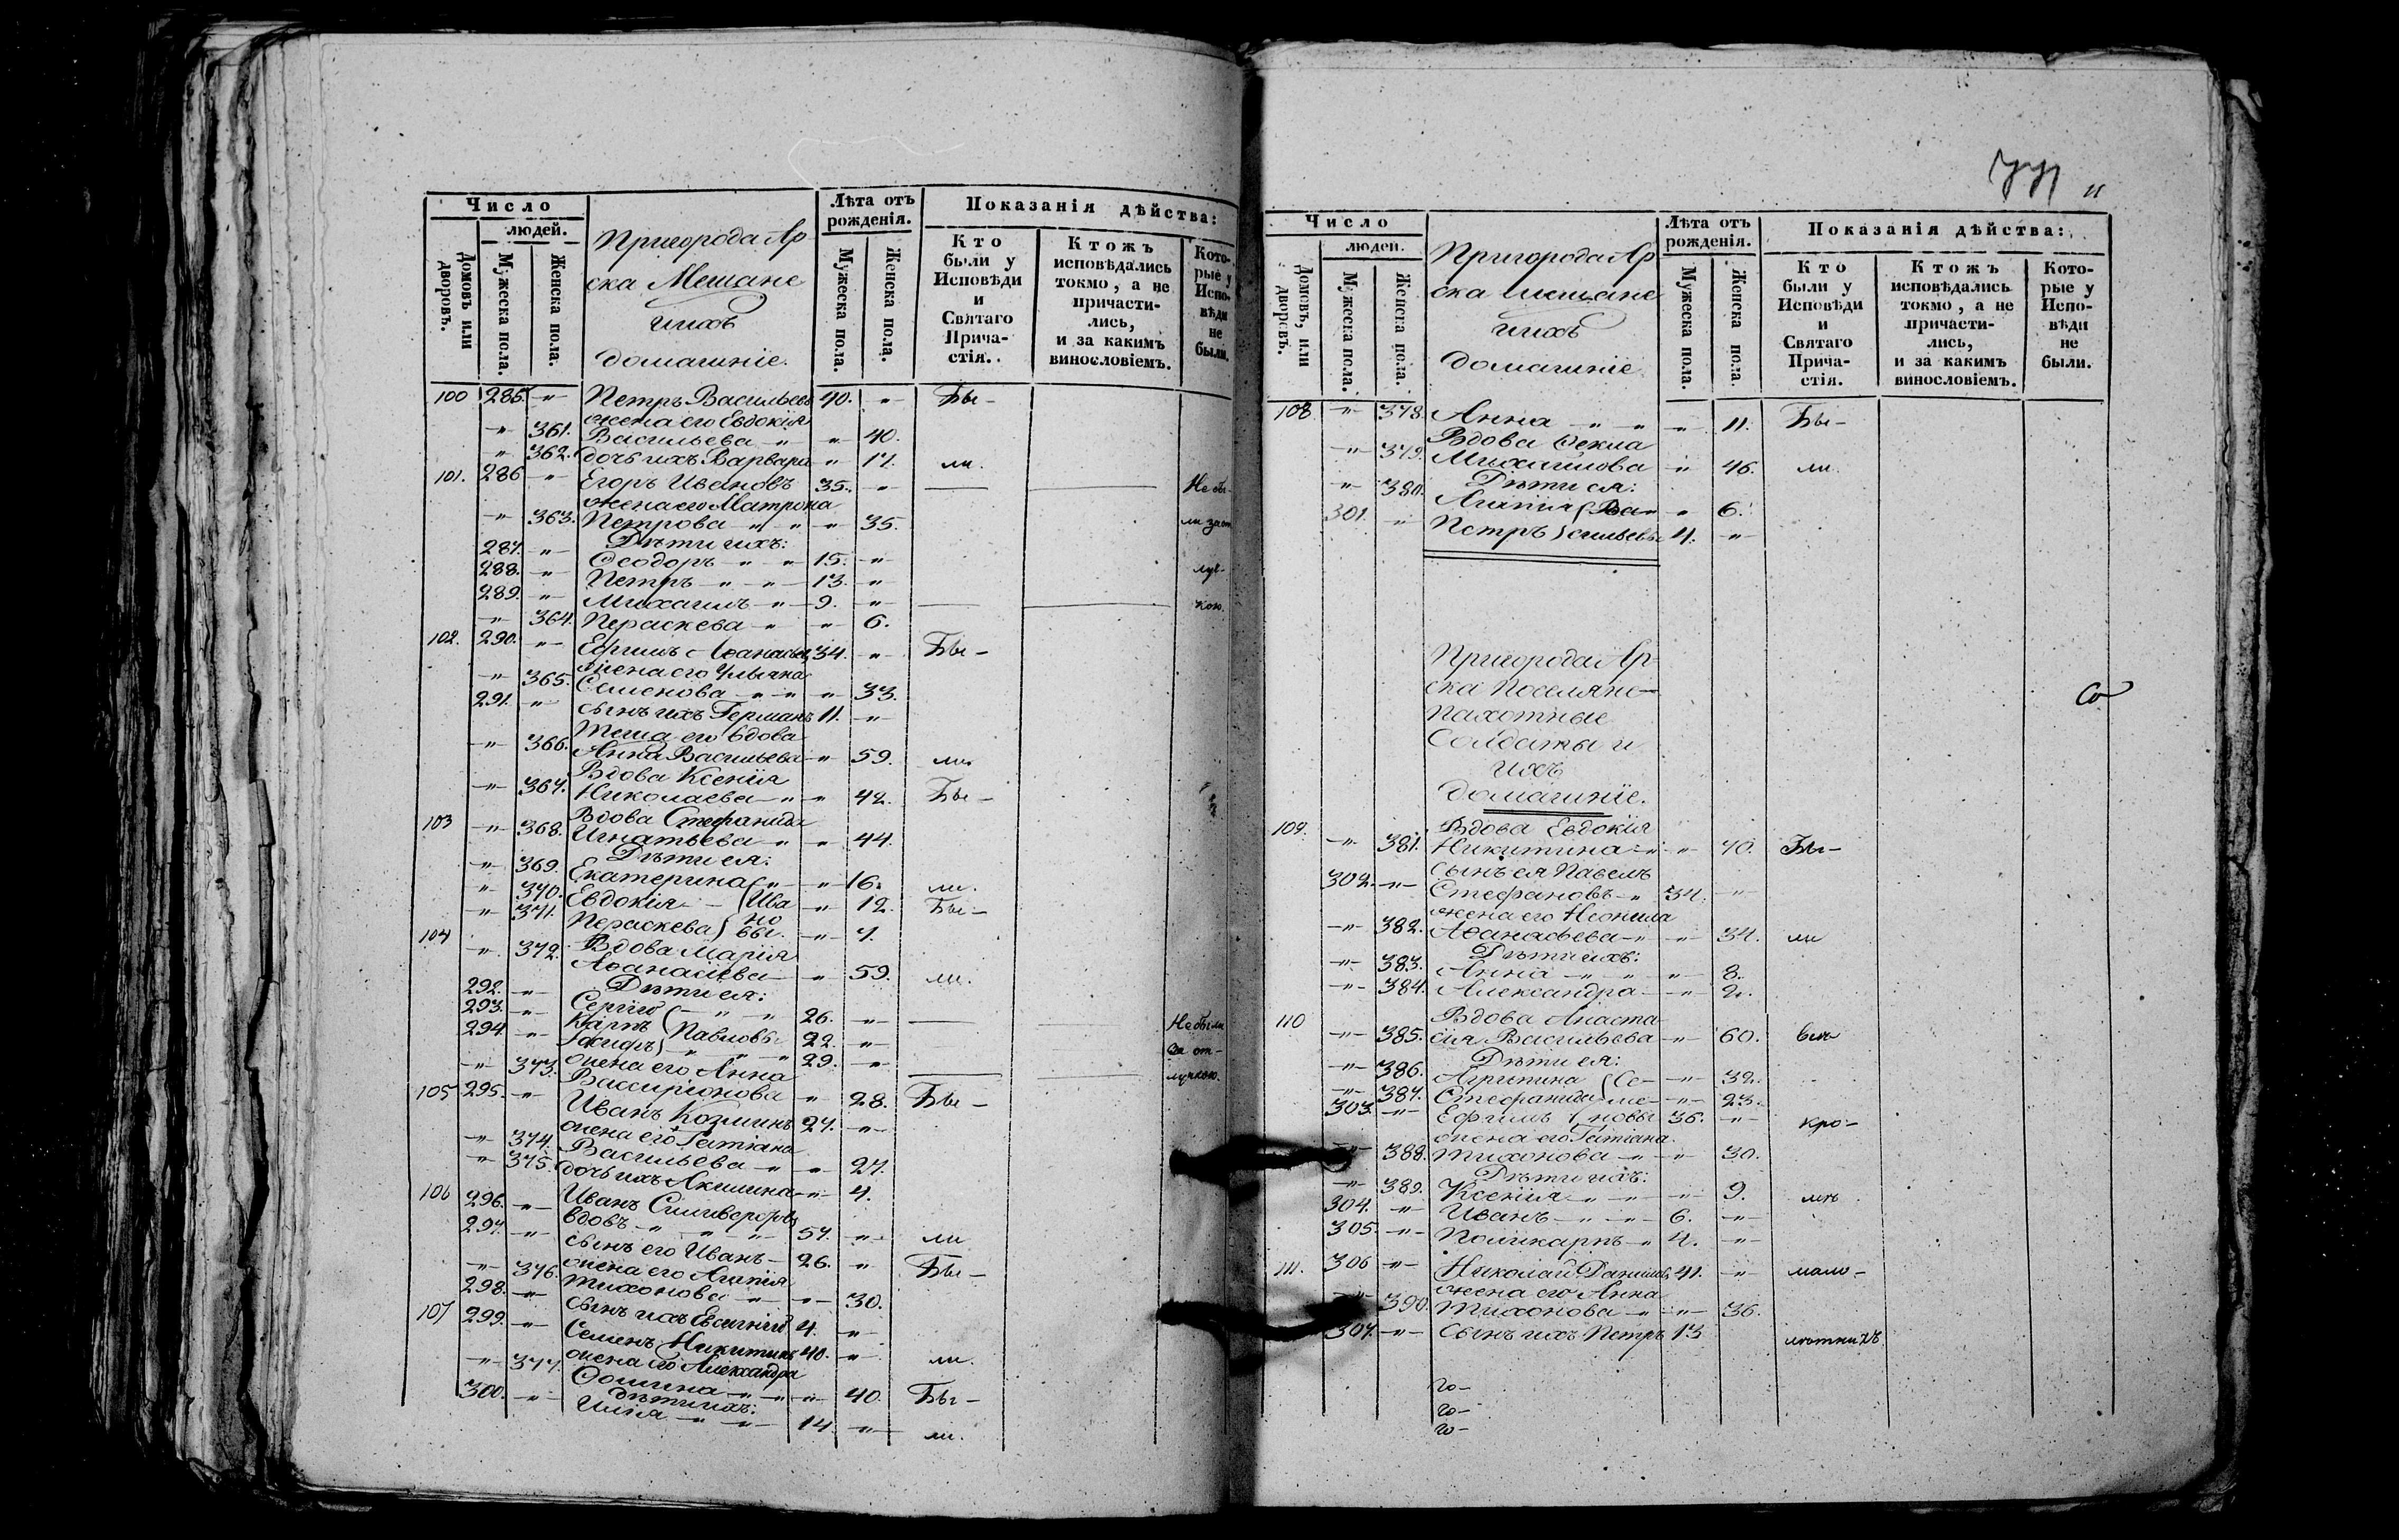 Число
людей.
Домовъ или дворовъ.
Мужеска пола.
Женска пола.
Пригорода Ар
ска Мещане
ихъ
домашніе.
Лѣта отъ рожденія.
Мужеска пола.
Женска пола.
Показанія дѣйства:
Кто были у Исповѣди и Святаго Прича-стія.
Ктожъ исповѣдались токмо, а не причасти-лись, и за какимъ винословіемъ.
Кото-рые у Испо-вѣди не были.
100 285. -"- Петръ Васильевъ 40. -"- Бы-
жена его Евдокія
-"- 361. Васильева -"- -"- 40.
-"- 362. дочь ихъ Варвара -"- 17. ли.
101. 286 -"- Егоръ Ивановъ 35. -"- Не бы-
жена его Матрона
-"- 363. Петрова -"- -"- 35. ли за от
Дѣти ихъ:
287. -"- Ѳеодоръ -"- 15. -"-
288. -"- Петръ -"- 13. -"- луч-
289. -"- Михаилъ -"- 9. -"- кою.
-"- 364. Пераскева -"- -"- 6.
102. 290. -"- Ефимъ Аѳанасьев 34. -"- Бы-
жена его Ульяна
-"- 365. Семенова -"- -"- 33.
291. -"- сынъ ихъ Германъ 11. -"-
Теща его вдова
-"- 366. Анна Васильева -"- 59. ли.
Вдова Ксенія
-"- 367. Николаева -"- -"- 42. Бы-
103 Вдова Стефанида
-"- 368. Игнатьева -"- -"- 44.
Дѣти ея:
-"- 369. Екатерина -"- 16. ли.
-"- 370. Евдокія Ива -"- 12. Бы-
-"- 371. Пераскева но вы. -"- 7.
104 Вдова Марія
-"- 372. Аѳанасіева -"- 59. ли.
Дѣти ея:
292. -"- Сергій -"- 26. -"-
293. -"- Карпъ Павловы 22. -"- Не были
294. -"- Іосифъ -"- 29. -"- За от-
жена его Анна
-"- 373. Виссаріонова -"- 28. лучкою.
105 295. -"- Иванъ Козминъ 27. -"- Бы-
жена его Татіана
-"- 374. Васильева -"- -"- 27.
-"- 375. дочь ихъ Акилина -"- 4.
106 296. -"- Иванъ Сильверстов
вдовъ -"- 57. -"- ли
297. -"- сынъ его Иванъ 26. -"- Бы-
жена его Агапія
-"- 376. Тихонова -"- -"- 30.
298. -"- сынъ ихъ Евсигній 4. -"-
107 299. -"- Семенъ Никитинъ 40. -"- ли.
жена его Александра
-"- 377. Ѳомина -"- -"- 40. Бы-
дѣти ихъ:
300. -"- Илія -"- 14. -"- ли.
Число
людей.
Домовъ, или дворовъ.
Мужеска пола.
Женска пола.
Пригорода Ар
ска Мещане
ихъ
домашніе
Лѣта отъ рожденія.
Мужеска пола.
Женска пола.
Показанія дѣйства:
Кто были у Исповѣди и Святаго Прича-стія.
Ктожъ исповѣдались токмо, а не причасти-лись, и за какимъ винословіемъ.
Кото-рые у Испо-вѣди не были.
108 -"- 378. Анна -"- -"- 11. Бы-
Вдова Ѳекла
-"- 379. Михаилова -"- 46. ли.
Дѣти ея:
-"- 380. Агапія Ва- -"- 6.
301. -"- Петръ сильевы 4. -"-
Пригорода Ар-
ска Поселяне-
Пахотные
Солдаты и
ихъ
домашніе.
109. Вдова Евдокія
-"- 381. Никитина -"- -"- 70. Бы-
сынъ ея Павелъ
302. -"- Стефановъ -"- 34. -"-
жена его Неонила
-"- 382. Аѳанасьева -"- -"- 34. ли
Дѣти ихъ:
-"- 383. Анна -"- -"- 8.
-"- 384. Александра -"- 2.
110 Вдова Анаста-
-"- 385. сія Васильева -"- 60. всѣ
Дѣти ея:
-"- 386. Агрипина Се- -"- 32.
-"- 387. Стефанида ме- -"- 23.
303. -"- Ефимъ новы 36. -"- кро-
жена его Татіана
-"- 388. Тихонова -"- -"- 30.
Дѣти ихъ:
-"- 389. Ксенія -"- -"- 9. мѣ
304. -"- Иванъ -"- 6. -"-
305. -"- Поликарпъ -"- 4. -"-
111. 306 -"- Николай Данилов 41. -"- мало-
жена его Анна
-"- 390. Тихонова -"- -"- 36.
307. -"- Сынъ ихъ Петръ 13 лѣтнихъ
го-
го-
го-